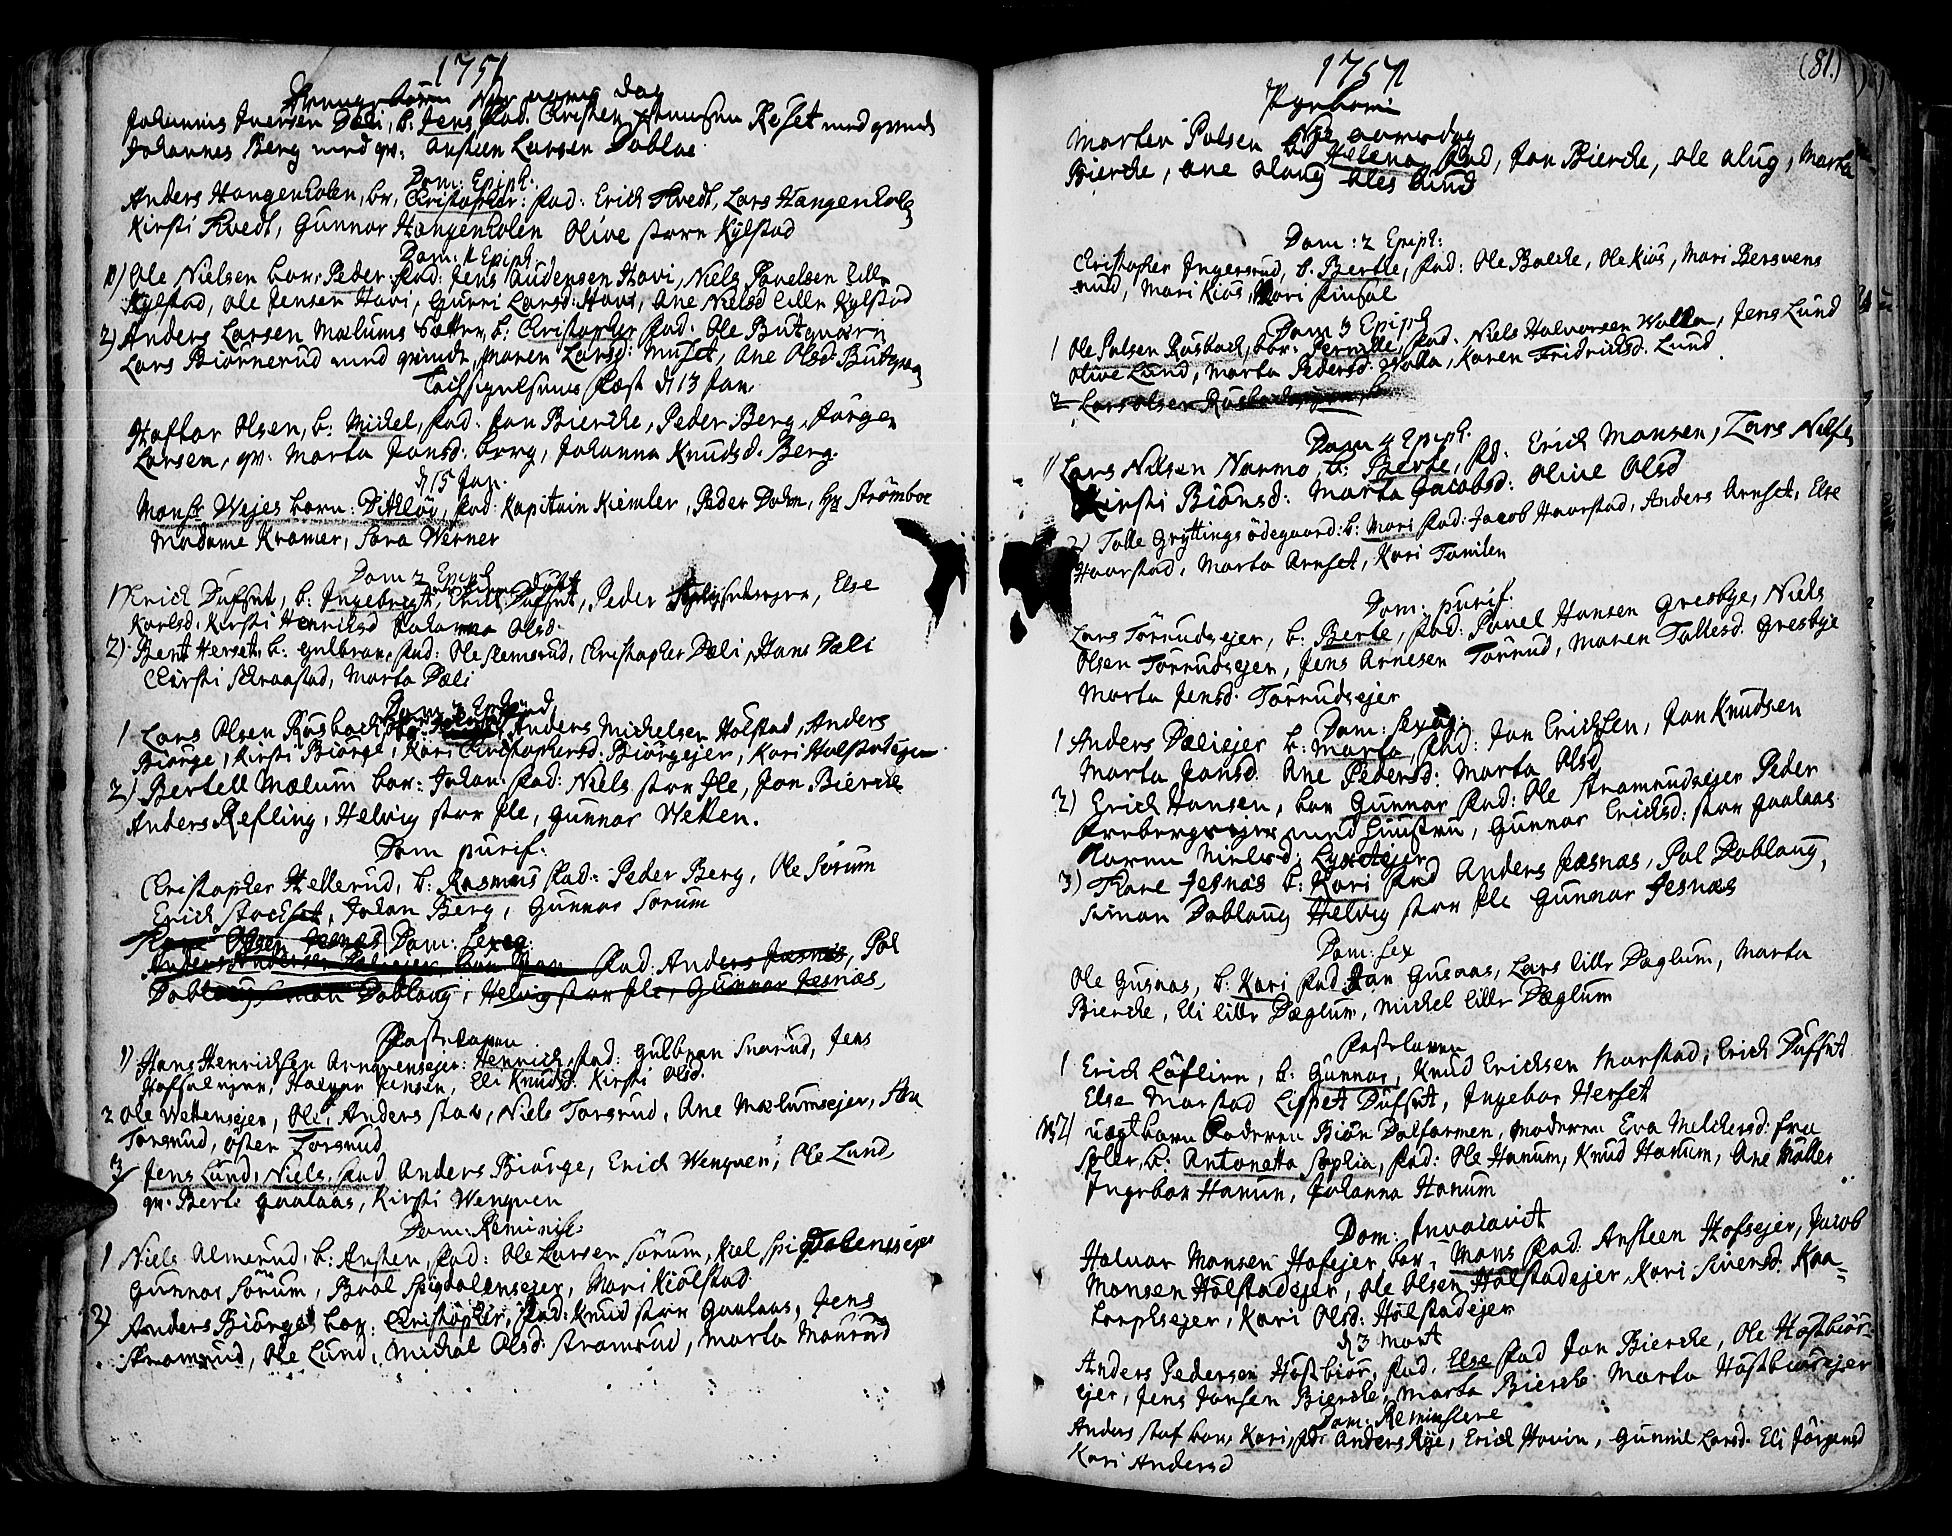 1751
Drenge børn Nye aars dag
Johannes Iversen Dæli, b: Jens, fad: Christen Reset med qvinde
Johannes Berg med qv: Ansteen Larsen Dobloe
Dom: Epiph:
Anders Hangenholen, br, Christopher: fad: Erich Tvedt, Lars Hangenholen
Kirsti Tvedt, Gunnor Hangenholen Olive store Kylstad
Dom: 1 Epiph
1) Ole Nielsen bar: Peder fad: Jens Audensen Hovi, Niels Povelsen lille
Kylstad, Ole Jensen Hovi, Gurri Larsd: Hovi, Ane Nielsd lille Kylstad
2) Anders Larsen Mælums Sætter, b: Christopher fad: Ole Butqvern
Lars Biørnerud med qvinde, Maren Larsd: Muset, Ane Olsd Butqve
Tachsigelsens Fæst d 13 Jan.
Haftor Olsen, b: Michel, fad: Jon Biercke, Peder Berg, Jørgen
Larsen, qv. Marta Jonsd: berg, Johanna Knudsd. Berg.
d 15 Jan.
Monsr Wejes barn: Dithløy, fad: Kapitain Kiemler, Peder Dohn, Hr Strømboe
Madame Kramer, Sara Werner
Dom 2 Epiph
1) Erich Dufset, b: Ingebregt, Erich Dufset, Peder, Else
Karlsd. Kirsti Henriksd Johanna Olsd.
2) Bert Herset, b: Gulbran, fad: Ole Remsrud, Christopher Dæli, Hans Dæli
Chirsti Skraastad, Marta Dæli
Dom 3 Epiph
1 Lars Olsen Rusbach, Anders Michelsen Holstad, Anders
Biørge, Kirsti Biørge, Kari Christophersd. Biørgejer, Kari Holstadejer
2) Bertell Mælum bar: Johan fad: Niels store Ile, Jon Biercke
Anders Refling, Helvig store Ile, Gunnor Wetten.
Dom purif:
Christopher Hellerud, b: Rasmus fad: Peder Berg, Ole Sørum
Erich Stockset, Johan Berg, Gunnor Sorum
Tore Olsen Jesnes Dom: Sexag:
Anders Andersen Dæliejer barn Jon fad: Anders Jæsnes, Pol
Dobloug, Simon Dobloug, Helvig store Ile, Gunnor Jesnæs,
Fastelaven
1) Hans Henrichsen: Henrich fad: Gulbran Snarud, Jens
Hofsalejer, Halvor Jensen, Eli Knudsd. Kirsti Olsd.
2 Ole Wettensejer, Ole, Anders stav, Niels Torsrud, Ane Mælumsejer,
Torsrud, Østen Torsrud
3 Jens Lund, Niels, fad Anders Biørge, Erich Wenqven, Ole Lund,
qv. Berte Gaalaas, Kirsti Wenqven
Dom: Reminisc:
1 Niels Almerud, b: Ansten, fad: Ole Larsen Sørum, Kiel Spigdalensejer
Gunnor Sørum, Boel Spigdalensejer, Mari Kiølstad.
2) Anders Biørge, bar: Christopher, fad: Knud store Gaalaas, Jens
Stramrud, Ole Lund, Michol Olsd: Stramrud, Marta Maurud
1757
(81)
Pigebørn
Nye aarsdag
Marten Polsen
Helena fad, Jon Biercke, Ole Alug, Marta
Biercke, Ane Aloug
Dom: 2 Epiph:
Christopher Ingersrud, b: Bertle, fad: Ole Balche, Ole Kiøs, Mari Bersvens
rud, Mari Kiøs, Mari Finsal
Dom 3 Epiph
1 Ole Polsen Rusbach, bar: Pernille, fad: Niels Halvorsen Walla, Jens Lund
Olive Lund, Marta Pedersd: Walla, Karen Fridrichsd. Lund
2 Lars Olsen
Dom 4 Epiph.
1) Lars Nilsen Narmo, b: Berte, fd: Erich Monsen, Lars Nilsen
Kirsti Biønsd: Marta Jacobsd: Olive Olsd
2) Tolle Gryttings ødegaard: b: Mari fad: Jacob Haarstad, Anders Arnset, Else
Haarstad, Marta Arnset, Kari Tomten
Dom: purif.
Lars Torrudsejer, b: Berte, fad: Povel Hansen Gresbye, Niels
Olsen Torrudsejer, Jens Arnesen Torrud, Maren Tollesd. Gresbye
Marta Jensd. Torrudsejer
Dom: Sexag:
1 Anders Dæliejer b: Marta, fad: Jon Erichsen, Jon Knudsen
Marta Jonsd. Ane Pedersd: Marta Olsd
2) Erich Hansen, bar Gunnor fad: Ole Stramrudsejer Peder
Arnbergsejer med hustru, Gunnor Erichsd: store Gaalaas
Karen Nielsd: Lyscheejer
3) Thore Jesnæs b: Kari fad Anders Jæsnæs, Pol Dobloug,
Simon Doblaug Helvig store Ile Gunnor Jesnæs
Dom: Sex
Ole Gusnas, b: Kari fad: Jon Gusaas, Lars lille Dæglum, Marta
Biercke, Eli lille Dæglum, Michel lille Dæglum
Fastelaven
1 Erich Løflien, b: Gunnor, Knud Ericksen Morstad, Erich Dufset
Else Morstad Lisbet Dufset, Ingebor Herset
2 uægt barn Faderen Biøn Dalfarmen, Moderen Eva Melchersd: fra
b: Antonetta Sophia, fad: Ole Hanum, Knud Hanum, Ane Møller
Ingebor Hanum, Johanna Hanum
Dom: Invocavit
Halvor Monsen Hofsejer bar, Mons fad: Ansteen Hofsejer, Jacob
Monsen Hølstadejer, Ole Olsen Hølstadejer, Kari Siversd. Kaa-
torpsejer, Kari Olsd: Hølstadejer
d 3 Mart
Anders Pedersen Høstbiør, fad. Else fad Jon Biercke, Ole Høstbiør-
ejer, Jens Jonsen Biercke, Marta Biercke Marta Høstbiørejer
Dom: Reminscere
Anders Stof bar, Kari, fad: Anders Rye, Erich Hovin, Gunnil Larsd. Eli Jørgensd
Kari Andersd